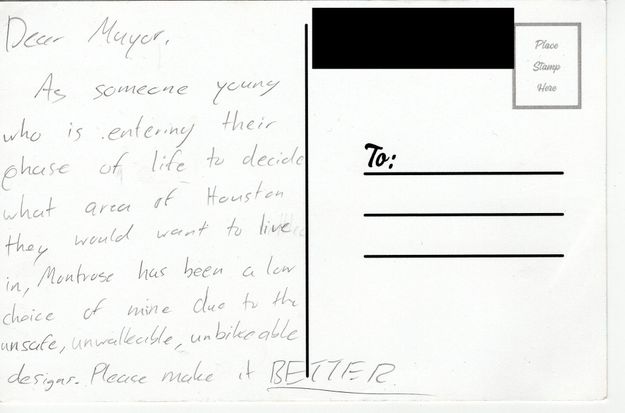 Dear Mayor,
As someone young
who is entering their
phase of life to decide
what area of Houston
they would want to live
in, Montrose has been a low
choice of mine due to the
unsafe, unwalkable, unbikeable
designs. Please make it BETTER.
Place
Stamp
Here
To: